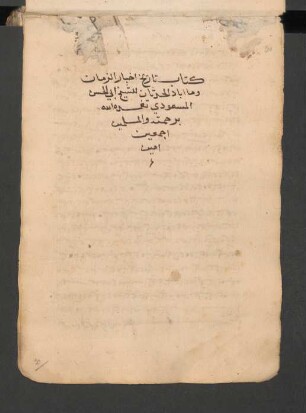 كتاب تاريخ اخبار الزمان
وما اباد الحدثان للشيخ ابي الحسن
المسعودي تغمده الله
برحمته والمسلمين
اجمعين
امين